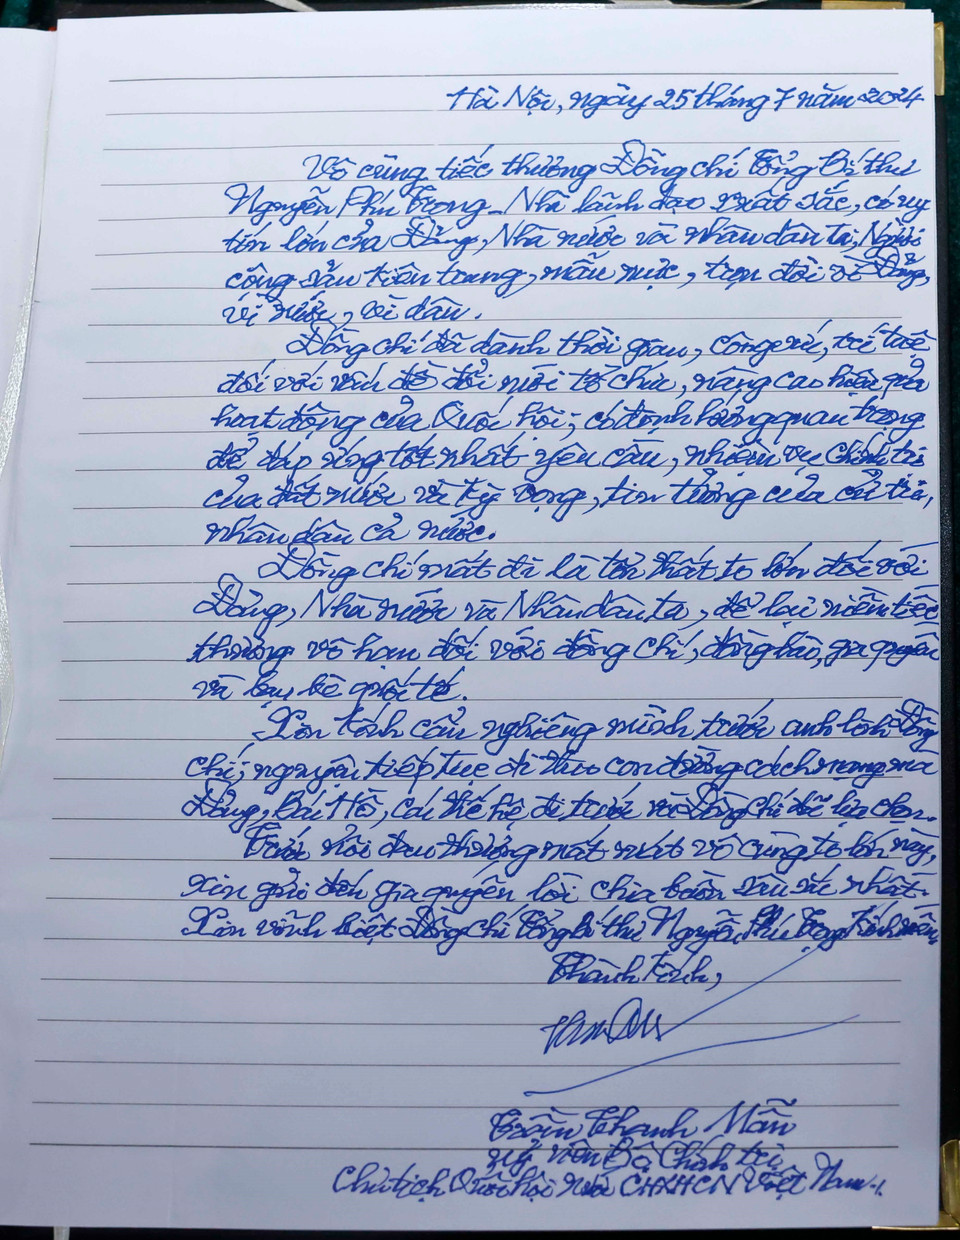 Hà Nội, ngày 25 tháng 7 năm 2024
Vô cùng tiếc thương Đồng chí Tổng Bí thư
Nguyễn Phú Trọng - Nhà lãnh đạo xuất sắc, có uy
tín lớn của Đảng, Nhà nước và nhân dân ta; Người
cộng sản kiên trung, mẫu mực, trọn đời vì Đảng,
vì nước, vì dân.
Đồng chí đã dành thời gian, công sức, trí tuệ
đối với vấn đề đổi mới tổ chức, nâng cao hiệu quả
hoạt động của Quốc hội; có định hướng quan trọng
để đáp ứng tốt nhất yêu cầu, nhiệm vụ chính trị
của đất nước và kỳ vọng, tin tưởng của cử tri,
nhân dân cả nước.
Đồng chí mất đi là tổn thất to lớn đối với
Đảng, Nhà nước và Nhân dân ta, để lại niềm tiếc
thương vô hạn đối với đồng chí, đồng bào, gia quyến
và bạn bè quốc tế.
Xin kính cẩn nghiêng mình trước anh linh Đồng
chí; nguyện tiếp tục đi theo con đường cách mạng mà
Đảng, Bác Hồ, các thế hệ đi trước và Đồng chí đã lựa chọn.
Trước nỗi đau thương mất mát vô cùng to lớn này,
xin gửi đến gia quyến lời chia buồn sâu sắc nhất.
Xin vĩnh biệt Đồng chí Tổng Bí thư Nguyễn Phú Trọng kính mến,
Thành kính,
Trần Thanh Mẫn
Uỷ viên Bộ Chính trị
Chủ tịch Quốc hội nước CHXHCN Việt Nam